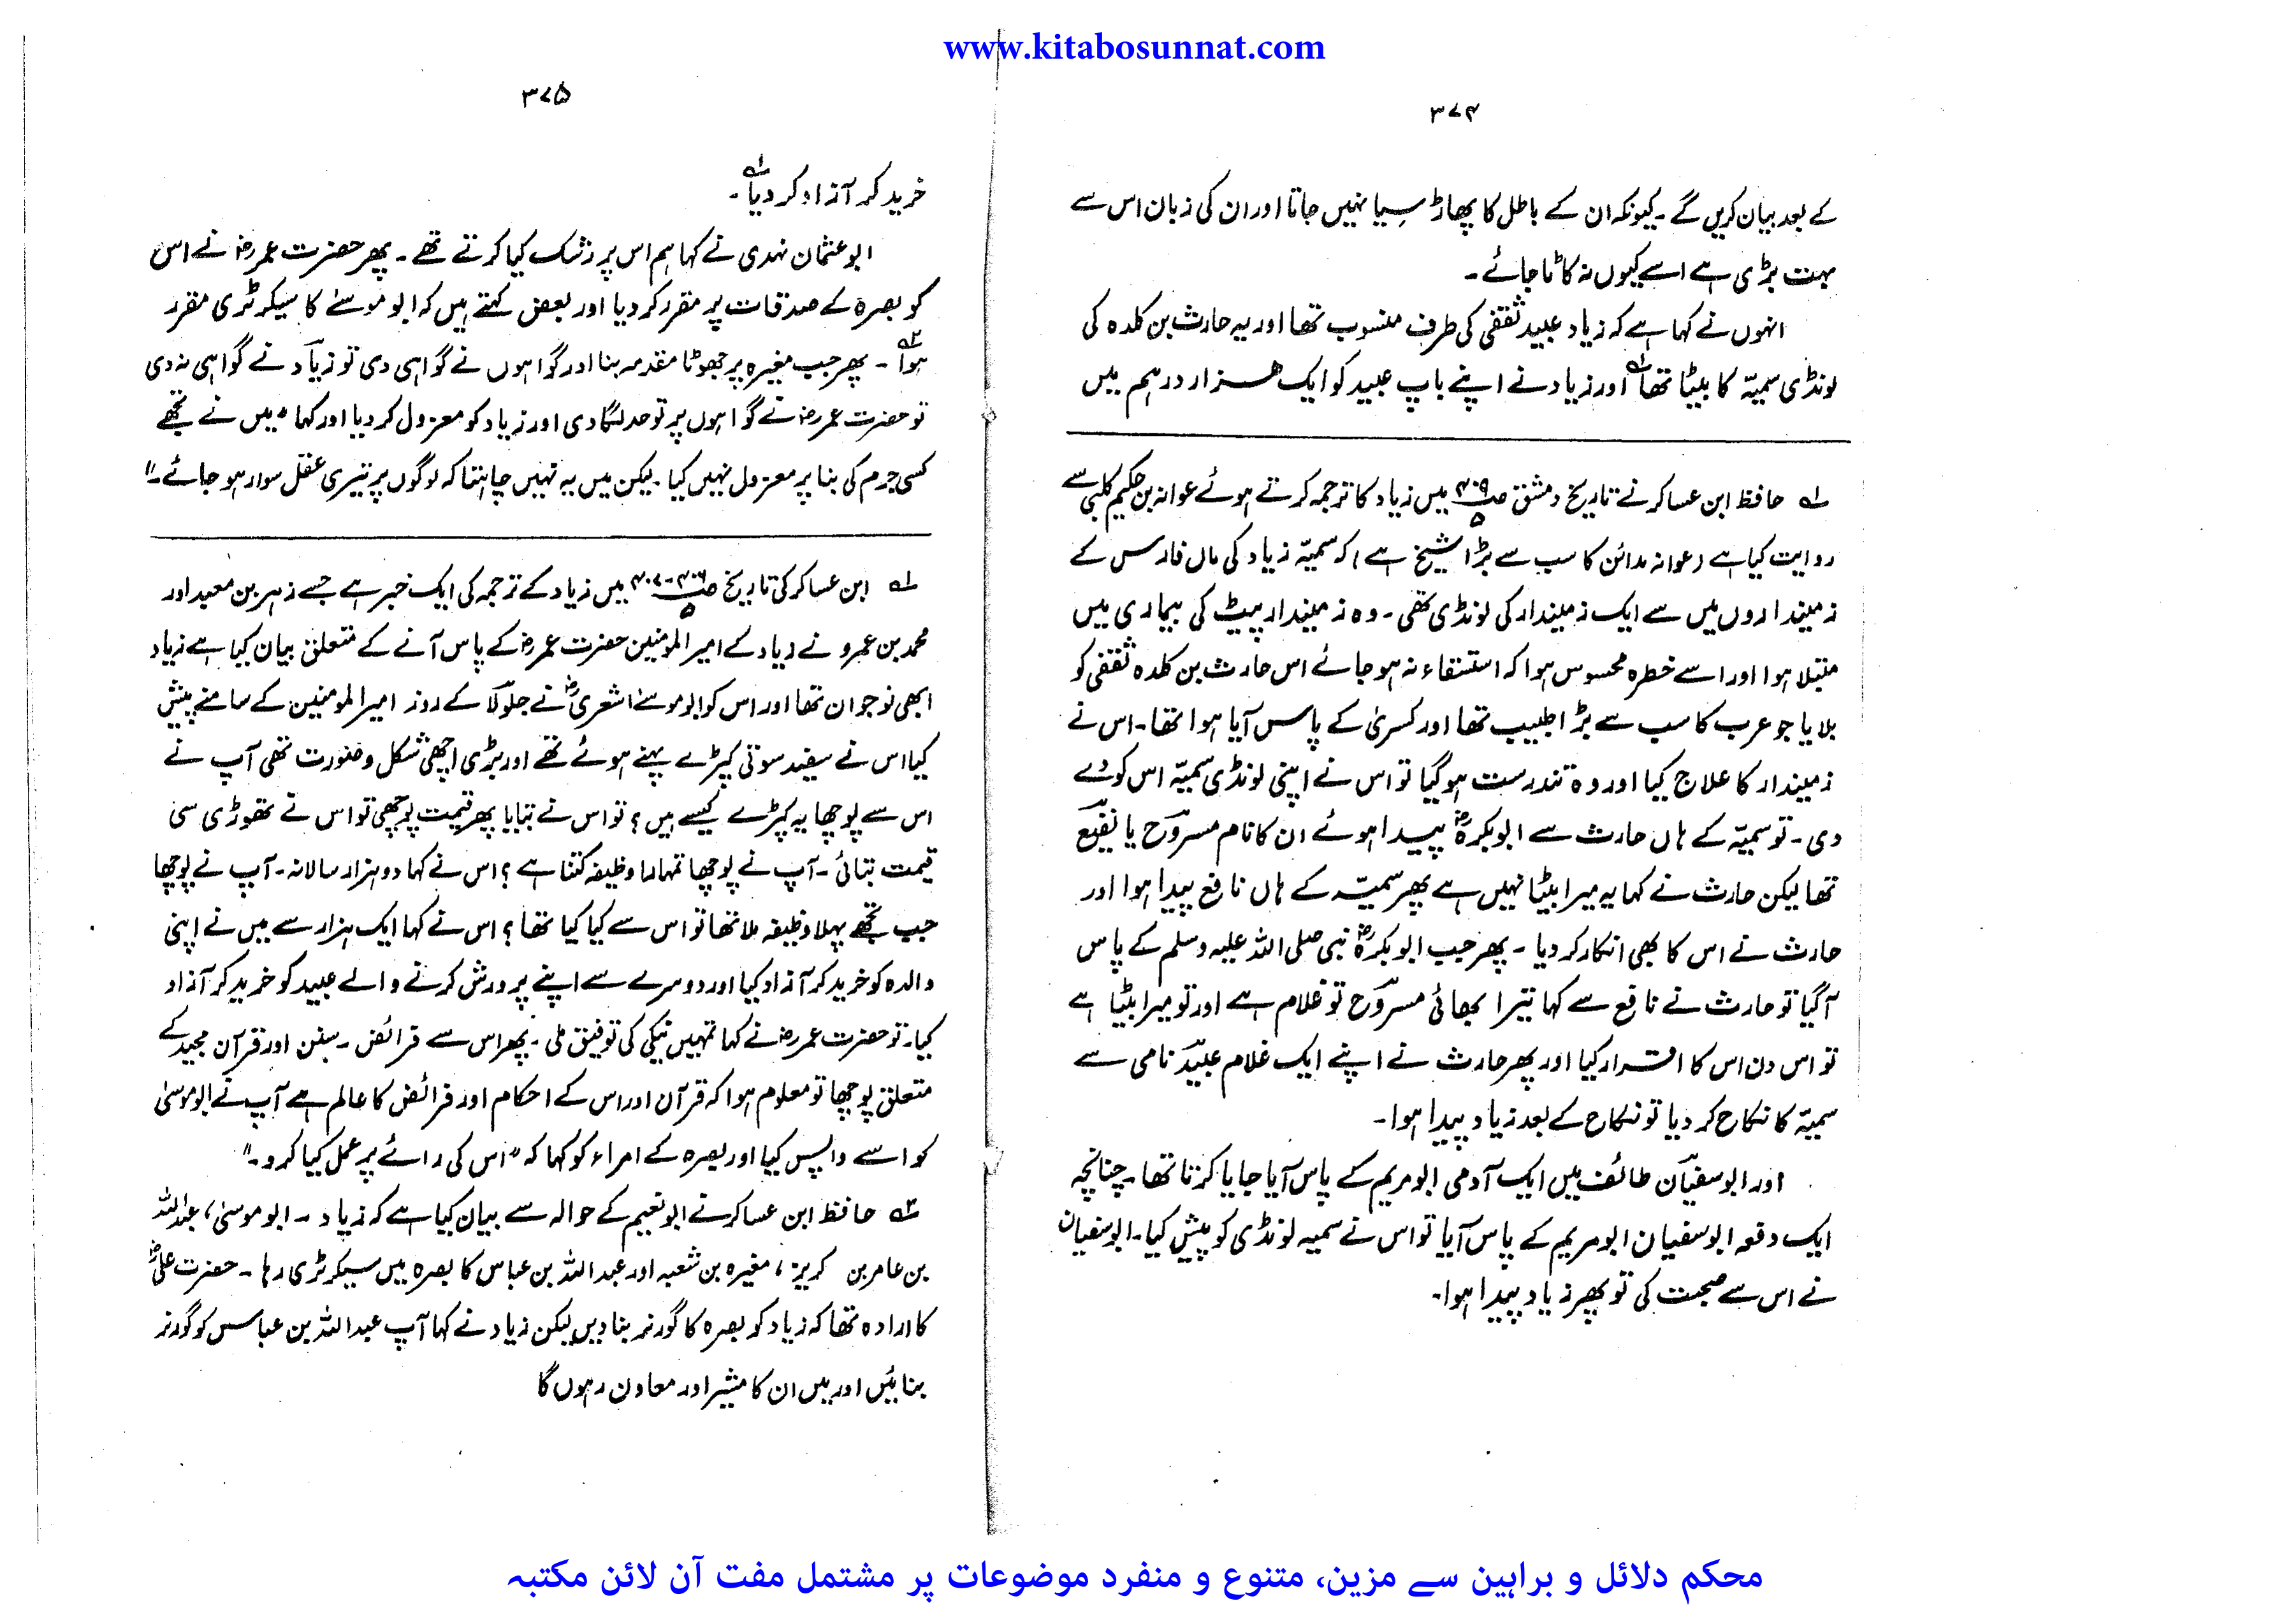 www.kitabosunnat.com
۳۷۴
کے بعد بیان کریں گے۔ کیونکہ ان کے باطل کا پھاڑ سِیا نہیں جاتا اور ان کی زبان اس سے
بہت بڑی ہے اسے کیوں نہ کاٹا جائے۔
انہوں نے کہا ہے کہ زیاد عبید ثقفی کی طرف منسوب تھا اور یہ حارث بن کلدہ کی
لونڈی سمیّہ کا بیٹا تھا ؎۱ اور زیاد نے اپنے باپ عبید کو ایک ہزار درہم میں
؎۱ حافظ ابن عساکر نے تاریخ دمشق ص ۴۰۹/۵ میں زیاد کا ترجمہ کرتے ہوئے عوانہ بن حکیم کلبی سے
روایت کیا ہے (عوانہ مدائن کا سب سے بڑا شیخ ہے) کہ سمیّہ زیاد کی ماں فارس کے
زمینداروں میں سے ایک زمیندار کی لونڈی تھی۔ وہ زمیندار پیٹ کی بیماری میں
مبتلا ہوا اور اسے خطرہ محسوس ہوا کہ استسقاء نہ ہو جائے اس حارث بن کلدہ ثقفی کو
بلایا جو عرب کا سب سے بڑا طبیب تھا اور کسریٰ کے پاس آیا ہوا تھا۔ اس نے
زمیندار کا علاج کیا اور وہ تندرست ہو گیا تو اس نے اپنی لونڈی سمیّہ اس کو دے
دی۔ تو سمیّہ کے ہاں حارث سے ابوبکرہؓ پیدا ہوئے ان کا نام مسروح یا نفیع
تھا لیکن حارث نے کہا یہ میرا بیٹا نہیں ہے پھر سمیّہ کے ہاں نافع پیدا ہوا اور
حارث نے اس کا بھی انکار کر دیا۔ پھر جب ابوبکرہؓ نبی صلی اللہ علیہ وسلم کے پاس
آگیا تو حارث نے نافع سے کہا تیرا بھائی مسروح تو غلام ہے اور تو میرا بیٹا ہے
تو اس دن اس کا اقرار کیا اور پھر حارث نے اپنے ایک غلام عبید نامی سے
سمیّہ کا نکاح کر دیا تو نکاح کے بعد زیاد پیدا ہوا۔
اور ابوسفیان طائف میں ایک آدمی ابو مریم کے پاس آیا جایا کرتا تھا۔ چنانچہ
ایک دفعہ ابوسفیان ابو مریم کے پاس آیا تو اس نے سمیہ لونڈی کو پیش کیا۔ ابوسفیان
نے اس سے صحبت کی تو پھر زیاد پیدا ہوا۔
۳۷۵
خرید کر آزاد کر دیا ؎۱۔
ابو عثمان نہدی نے کہا ہم اس پر رشک کیا کرتے تھے۔ پھر حضرت عمرؓ نے اس
کو بصرہ کے صدقات پر مقرر کر دیا اور بعض کہتے ہیں کہ ابو موسےٰ کا سیکرٹری مقرر
ہوا ؎۲۔ پھر جب مغیرہ پر جھوٹا مقدمہ بنا اور گواہوں نے گواہی دی تو زیاد نے گواہی نہ دی
تو حضرت عمرؓ نے گواہوں پر تو حد لگا دی اور زیاد کو معزول کر دیا اور کہا "میں نے تجھے
کسی جرم کی بنا پر معزول نہیں کیا۔ لیکن میں یہ نہیں چاہتا کہ لوگوں پر تیری عقل سوار ہو جائے۔"
؎۱ ابن عساکر کی تاریخ ص ۴۰۶-۴۰۷/۵ میں زیاد کے ترجمہ کی ایک خبر ہے جسے زہیر بن معبد اور
محمد بن عمرو نے زیاد کے امیر المومنین حضرت عمرؓ کے پاس آنے کے متعلق بیان کیا ہے زیاد
ابھی نوجوان تھا اور اس کو ابو موسےٰ اشعریؓ نے جلولا کے روز امیر المومنین کے سامنے پیش
کیا اس نے سفید سوتی کپڑے پہنے ہوئے تھے اور بڑی اچھی شکل و صورت تھی آپ نے
اس سے پوچھا یہ کپڑے کیسے ہیں؟ تو اس نے بتایا پھر قیمت پوچھی تو اس نے تھوڑی سی
قیمت بتائی۔ آپ نے پوچھا تمہارا وظیفہ کتنا ہے؟ اس نے کہا دو ہزار سالانہ۔ آپ نے پوچھا
جب تجھے پہلا وظیفہ ملا تھا تو اس سے کیا کیا تھا؟ اس نے کہا ایک ہزار سے میں نے اپنی
والدہ کو خرید کر آزاد کیا اور دوسرے سے اپنے پرورش کرنے والے عبید کو خرید کر آزاد
کیا۔ تو حضرت عمرؓ نے کہا تمہیں نیکی کی توفیق ملی۔ پھر اس سے فرائض۔ سنن اور قرآن مجید کے
متعلق پوچھا تو معلوم ہوا کہ قرآن اور اس کے احکام اور فرائض کا عالم ہے آپ نے ابو موسیٰ
کو اسے واپس کیا اور بصرہ کے امراء کو کہا کہ "اس کی رائے پر عمل کیا کرو۔"
؎۲ حافظ ابن عساکر نے ابو نعیم کے حوالہ سے بیان کیا ہے کہ زیاد ۔ ابو موسیٰ، عبداللہ
بن عامر بن کریز، مغیرہ بن شعبہ اور عبداللہ بن عباس کا بصرہ میں سیکرٹری رہا۔ حضرت علیؓ
کا ارادہ تھا کہ زیاد کو بصرہ کا گورنر بنا دیں لیکن زیاد نے کہا آپ عبداللہ بن عباس کو گورنر
بنائیں اور میں ان کا مشیر اور معاون رہوں گا
محکم دلائل و براہین سے مزین، متنوع و منفرد موضوعات پر مشتمل مفت آن لائن مکتبہ